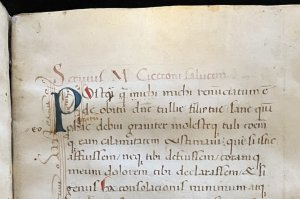 Servius M Ciceroni salutem
Postq̃ q̃ michi michi renunciatum e
de obitu tue tullie filie tue sane qua
debui graviter molesteq tuli coem
q eam calamitatem existimavi qui si istic
affuissem neq tibi defuissem coramq
meum dolorem tibi declarassem & si
genus hoc consolacionis miserum atq